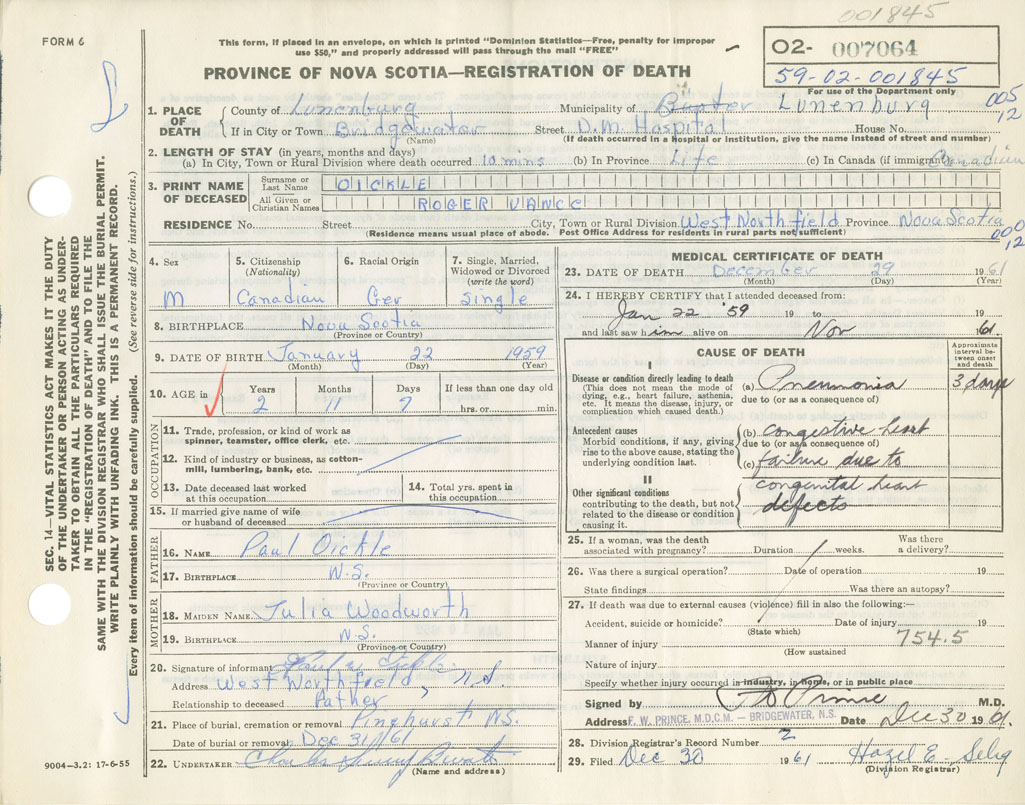 001845
FORM 6
This form, if placed in an envelope, on which is printed "Dominion Statistics—Free, penalty for improper
use $50," and properly addressed will pass through the mail "FREE"
PROVINCE OF NOVA SCOTIA—REGISTRATION OF DEATH
02- 007064
59-02-001845
For use of the Department only
005
12
SEC. 14—VITAL STATISTICS ACT MAKES IT THE DUTY
OF THE UNDERTAKER OR PERSON ACTING AS UNDER-
TAKER TO OBTAIN ALL THE PARTICULARS REQUIRED
IN THE "REGISTRATION OF DEATH" AND TO FILE THE
SAME WITH THE DIVISION REGISTRAR WHO SHALL ISSUE THE BURIAL PERMIT.
WRITE PLAINLY WITH UNFADING INK. THIS IS A PERMANENT RECORD.
Every item of information should be carefully supplied. (See reverse side for instructions.)
1. PLACE OF DEATH County of Lunenburg Municipality of Lunenburg
If in City or Town Bridgewater Street D.M. Hospital House No.
(Name) (If death occurred in a Hospital or Institution, give the name instead of street and number)
2. LENGTH OF STAY (in years, months and days)
(a) In City, Town or Rural Division where death occurred 10 mins (b) In Province Life (c) In Canada (if immigrant) Canadian
3. PRINT NAME OF DECEASED Surname or Last Name OICKLE
All Given or Christian Names ROGER VANCE
RESIDENCE No. Street City, Town or Rural Division West Northfield Province Nova Scotia
(Residence means usual place of abode. Post Office Address for residents in rural parts not sufficient)
000
12
4. Sex 5. Citizenship (Nationality) 6. Racial Origin 7. Single, Married, Widowed or Divorced (write the word)
M Canadian Ger Single
8. BIRTHPLACE Nova Scotia
(Province or Country)
9. DATE OF BIRTH January 22 1959
(Month) (Day) (Year)
10. AGE in Years Months Days If less than one day old
2 11 7 hrs. or min.
OCCUPATION
11. Trade, profession, or kind of work as
spinner, teamster, office clerk, etc.
12. Kind of industry or business, as cotton-
mill, lumbering, bank, etc.
13. Date deceased last worked at this occupation
14. Total yrs. spent in this occupation
15. If married give name of wife
or husband of deceased
FATHER
16. NAME Paul Oickle
17. BIRTHPLACE N.S.
(Province or Country)
MOTHER
18. MAIDEN NAME Julia Woodworth
19. BIRTHPLACE N.S.
(Province or Country)
20. Signature of informant
Address West Northfield, N.S.
Relationship to deceased Father
21. Place of burial, cremation or removal Pinehurst N.S.
Date of burial or removal Dec 31/61
22. UNDERTAKER Charles
(Name and address)
9004—3.2: 17-6-55
MEDICAL CERTIFICATE OF DEATH
23. DATE OF DEATH December 29 1961
(Month) (Day) (Year)
24. I HEREBY CERTIFY that I attended deceased from:
Jan 22 '59 19 to 19
and last saw him alive on Nov 1961.
CAUSE OF DEATH
Approximate interval be-
tween onset
and death
I
Disease or condition directly leading to death
(This does not mean the mode of
dying, e.g., heart failure, asthenia,
etc. It means the disease, injury, or
complication which caused death.)
(a) Pneumonia 3 days
due to (or as a consequence of)
Antecedent causes
Morbid conditions, if any, giving
rise to the above cause, stating the
underlying condition last.
(b) congestive heart
due to (or as a consequence of)
(c) failure due to
II
Other significant conditions
contributing to the death, but not
related to the disease or condition
causing it.
congenital heart
defects
25. If a woman, was the death
associated with pregnancy? Duration weeks. Was there a delivery?
26. Was there a surgical operation? Date of operation 19
State findings Was there an autopsy?
27. If death was due to external causes (violence) fill in also the following:—
Accident, suicide or homicide? Date of injury 19
(State which)
754.5
Manner of injury
(How sustained)
Nature of injury
Specify whether injury occurred in industry, in home, or in public place
Signed by F W Prince M.D.
Address F. W. PRINCE, M.D.C.M. — BRIDGEWATER, N.S. Date Dec 30 1961.
28. Division Registrar's Record Number 2
29. Filed Dec 30 1961 Hazel E. Selig
(Division Registrar)